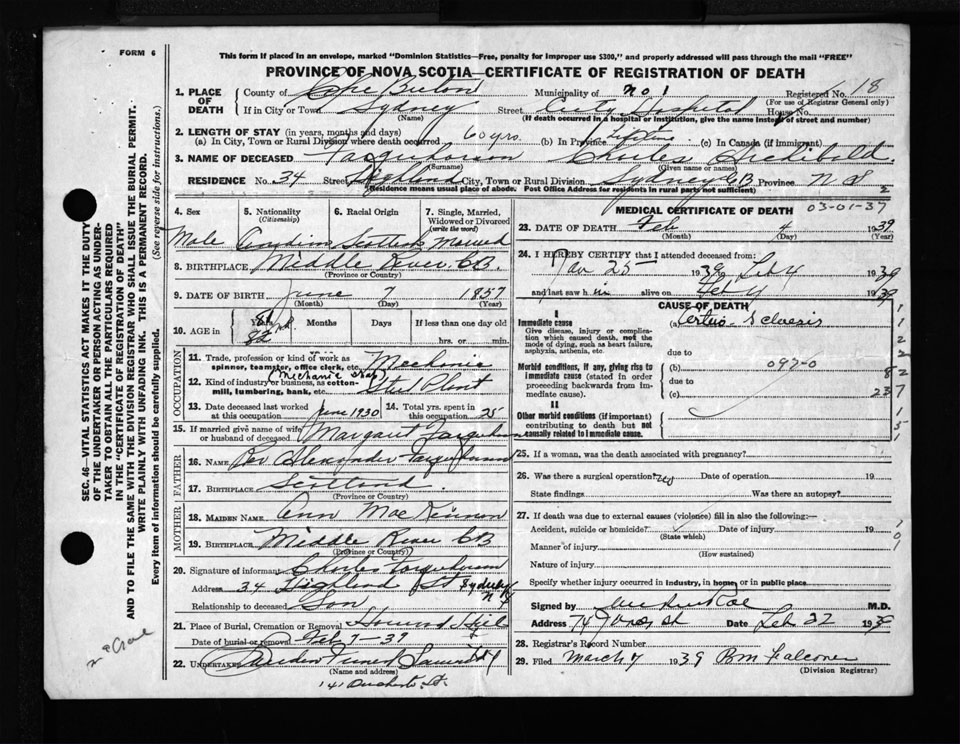 FORM 6
This form if placed in an envelope, marked "Dominion Statistics—Free, penalty for improper use $300," and properly addressed will pass through the mail "FREE"
PROVINCE OF NOVA SCOTIA—CERTIFICATE OF REGISTRATION OF DEATH
1. PLACE OF DEATH County of Cape Breton Municipality of No 1 Registered No. 118
(For use of Registrar General only)
If in City or Town Sydney Street City Hospital House No.
(Name) (If death occurred in a hospital or institution, give the name instead of street and number)
2. LENGTH OF STAY (in years, months and days)
(a) In City, Town or Rural Division where death occurred 60 yrs. (b) In Province Lifetime (c) In Canada (if immigrant)
3. NAME OF DECEASED Farquharson Charles Archibald.
(Surname) (Given name or names)
RESIDENCE No. 34 Street Highland City, Town or Rural Division Sydney C B Province N S
(Residence means usual place of abode. Post Office Address for residents in rural parts not sufficient) 2
4. Sex 5. Nationality 6. Racial Origin 7. Single, Married, Widowed or Divorced
(Citizenship) (write the word)
Male Canadian Scottish Married
8. BIRTHPLACE Middle River, CB.
(Province or Country)
9. DATE OF BIRTH June 7 1857
(Month) (Day) (Year)
10. AGE in Years Months Days If less than one day old
82 hrs. or min.
OCCUPATION
11. Trade, profession or kind of work as spinner, teamster, office clerk, etc. Mechanic
12. Kind of industry or business, as cotton-mill, lumbering, bank, etc. Mechanic Shop Steel Plant
13. Date deceased last worked at this occupation June 1930 14. Total yrs. spent in this occupation 25
15. If married give name of wife or husband of deceased Margaret Farquharson
FATHER
16. NAME Rev Alexander Farquharson
17. BIRTHPLACE Scotland.
(Province or Country)
MOTHER
18. MAIDEN NAME Ann MacKinnon
19. BIRTHPLACE Middle River CB
(Province or Country)
20. Signature of informant Charles Farquharson
Address 34 Highland St Sydney N S
Relationship to deceased Son
21. Place of Burial, Cremation or Removal
Date of burial or removal Feb 7-39
22. UNDERTAKER Funeral
(Name and address)
141 St.
MEDICAL CERTIFICATE OF DEATH 03-01-37
23. DATE OF DEATH Feb 4 1939
(Month) (Day) (Year)
24. I HEREBY CERTIFY that I attended deceased from:
Jan 25 1939 Feb 4 1939
and last saw h im alive on Feb 4 1939
CAUSE OF DEATH
I
Immediate cause
Give disease, injury or complication which caused death, not the mode of dying, such as heart failure, asphyxia, asthenia, etc.
(a) Arterio-Sclerosis
due to
Morbid conditions, if any, giving rise to immediate cause (stated in order proceeding backwards from immediate cause).
(b) 097-0
due to
(c)
II
Other morbid conditions (if important) contributing to death but not causally related to immediate cause.
25. If a woman, was the death associated with pregnancy?
26. Was there a surgical operation? No Date of operation 19
State findings Was there an autopsy?
27. If death was due to external causes (violence) fill in also the following:—
Accident, suicide or homicide? Date of injury 19
(State which)
Manner of injury
(How sustained)
Nature of injury
Specify whether injury occurred in industry, in home, or in public place
Signed by M.D.
Address 74 St Date Feb 22 1939
28. Registrar's Record Number
29. Filed March 7 1939 Falconer
(Division Registrar)
SEC. 46—VITAL STATISTICS ACT MAKES IT THE DUTY
OF THE UNDERTAKER OR PERSON ACTING AS UNDER-
TAKER TO OBTAIN ALL THE PARTICULARS REQUIRED
IN THE "CERTIFICATE OF REGISTRATION OF DEATH"
AND TO FILE THE SAME WITH THE DIVISION REGISTRAR WHO SHALL ISSUE THE BURIAL PERMIT.
WRITE PLAINLY WITH UNFADING INK. THIS IS A PERMANENT RECORD.
Every item of information should be carefully supplied. (See reverse side for instructions.)